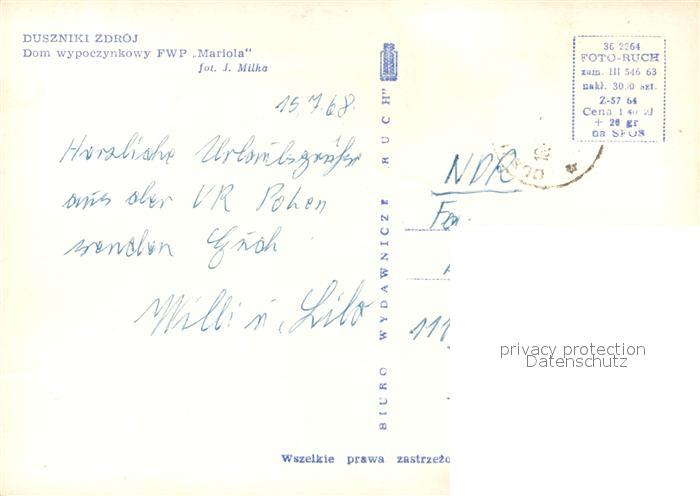 DUSZNIKI ZDRÓJ
Dom wypoczynkowy FWP „Mariola"
fot. J. Milka
15.7.68.
Herzliche Urlaubsgrüße
aus der VR Polen
senden Euch
Willi u. Lilo
BIURO WYDAWNICZE „RUCH"
36 2264
FOTO-RUCH
zam. III 546 63
nakł. 3000 szt.
Z-57 64
Cena 1 40 zł
+ 20 gr
na SFOS
NDR
Fam
111
privacy protection
Datenschutz
Wszelkie prawa zastrzeżo